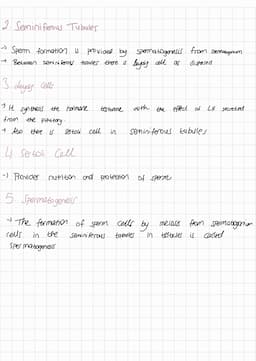 2. Seminiferous Tubules
→ Sperm formation is provided by spermatogenesis from
→ Between seminiferous tubules there is leydig cell as
3. leydig cells
→ It synthesis the hormone with the effect of LH secreted
from the pituitary.
→ Also there is sertoli cell in seminiferous tubules
4. Sertoli Cell
→ Provides nutrition and protection of sperms
5. Spermatogenesis
→ The formation of sperm cells by meiosis from spermatogonium
cells in the seminiferous tubules in testicles is called
spermatogenesis